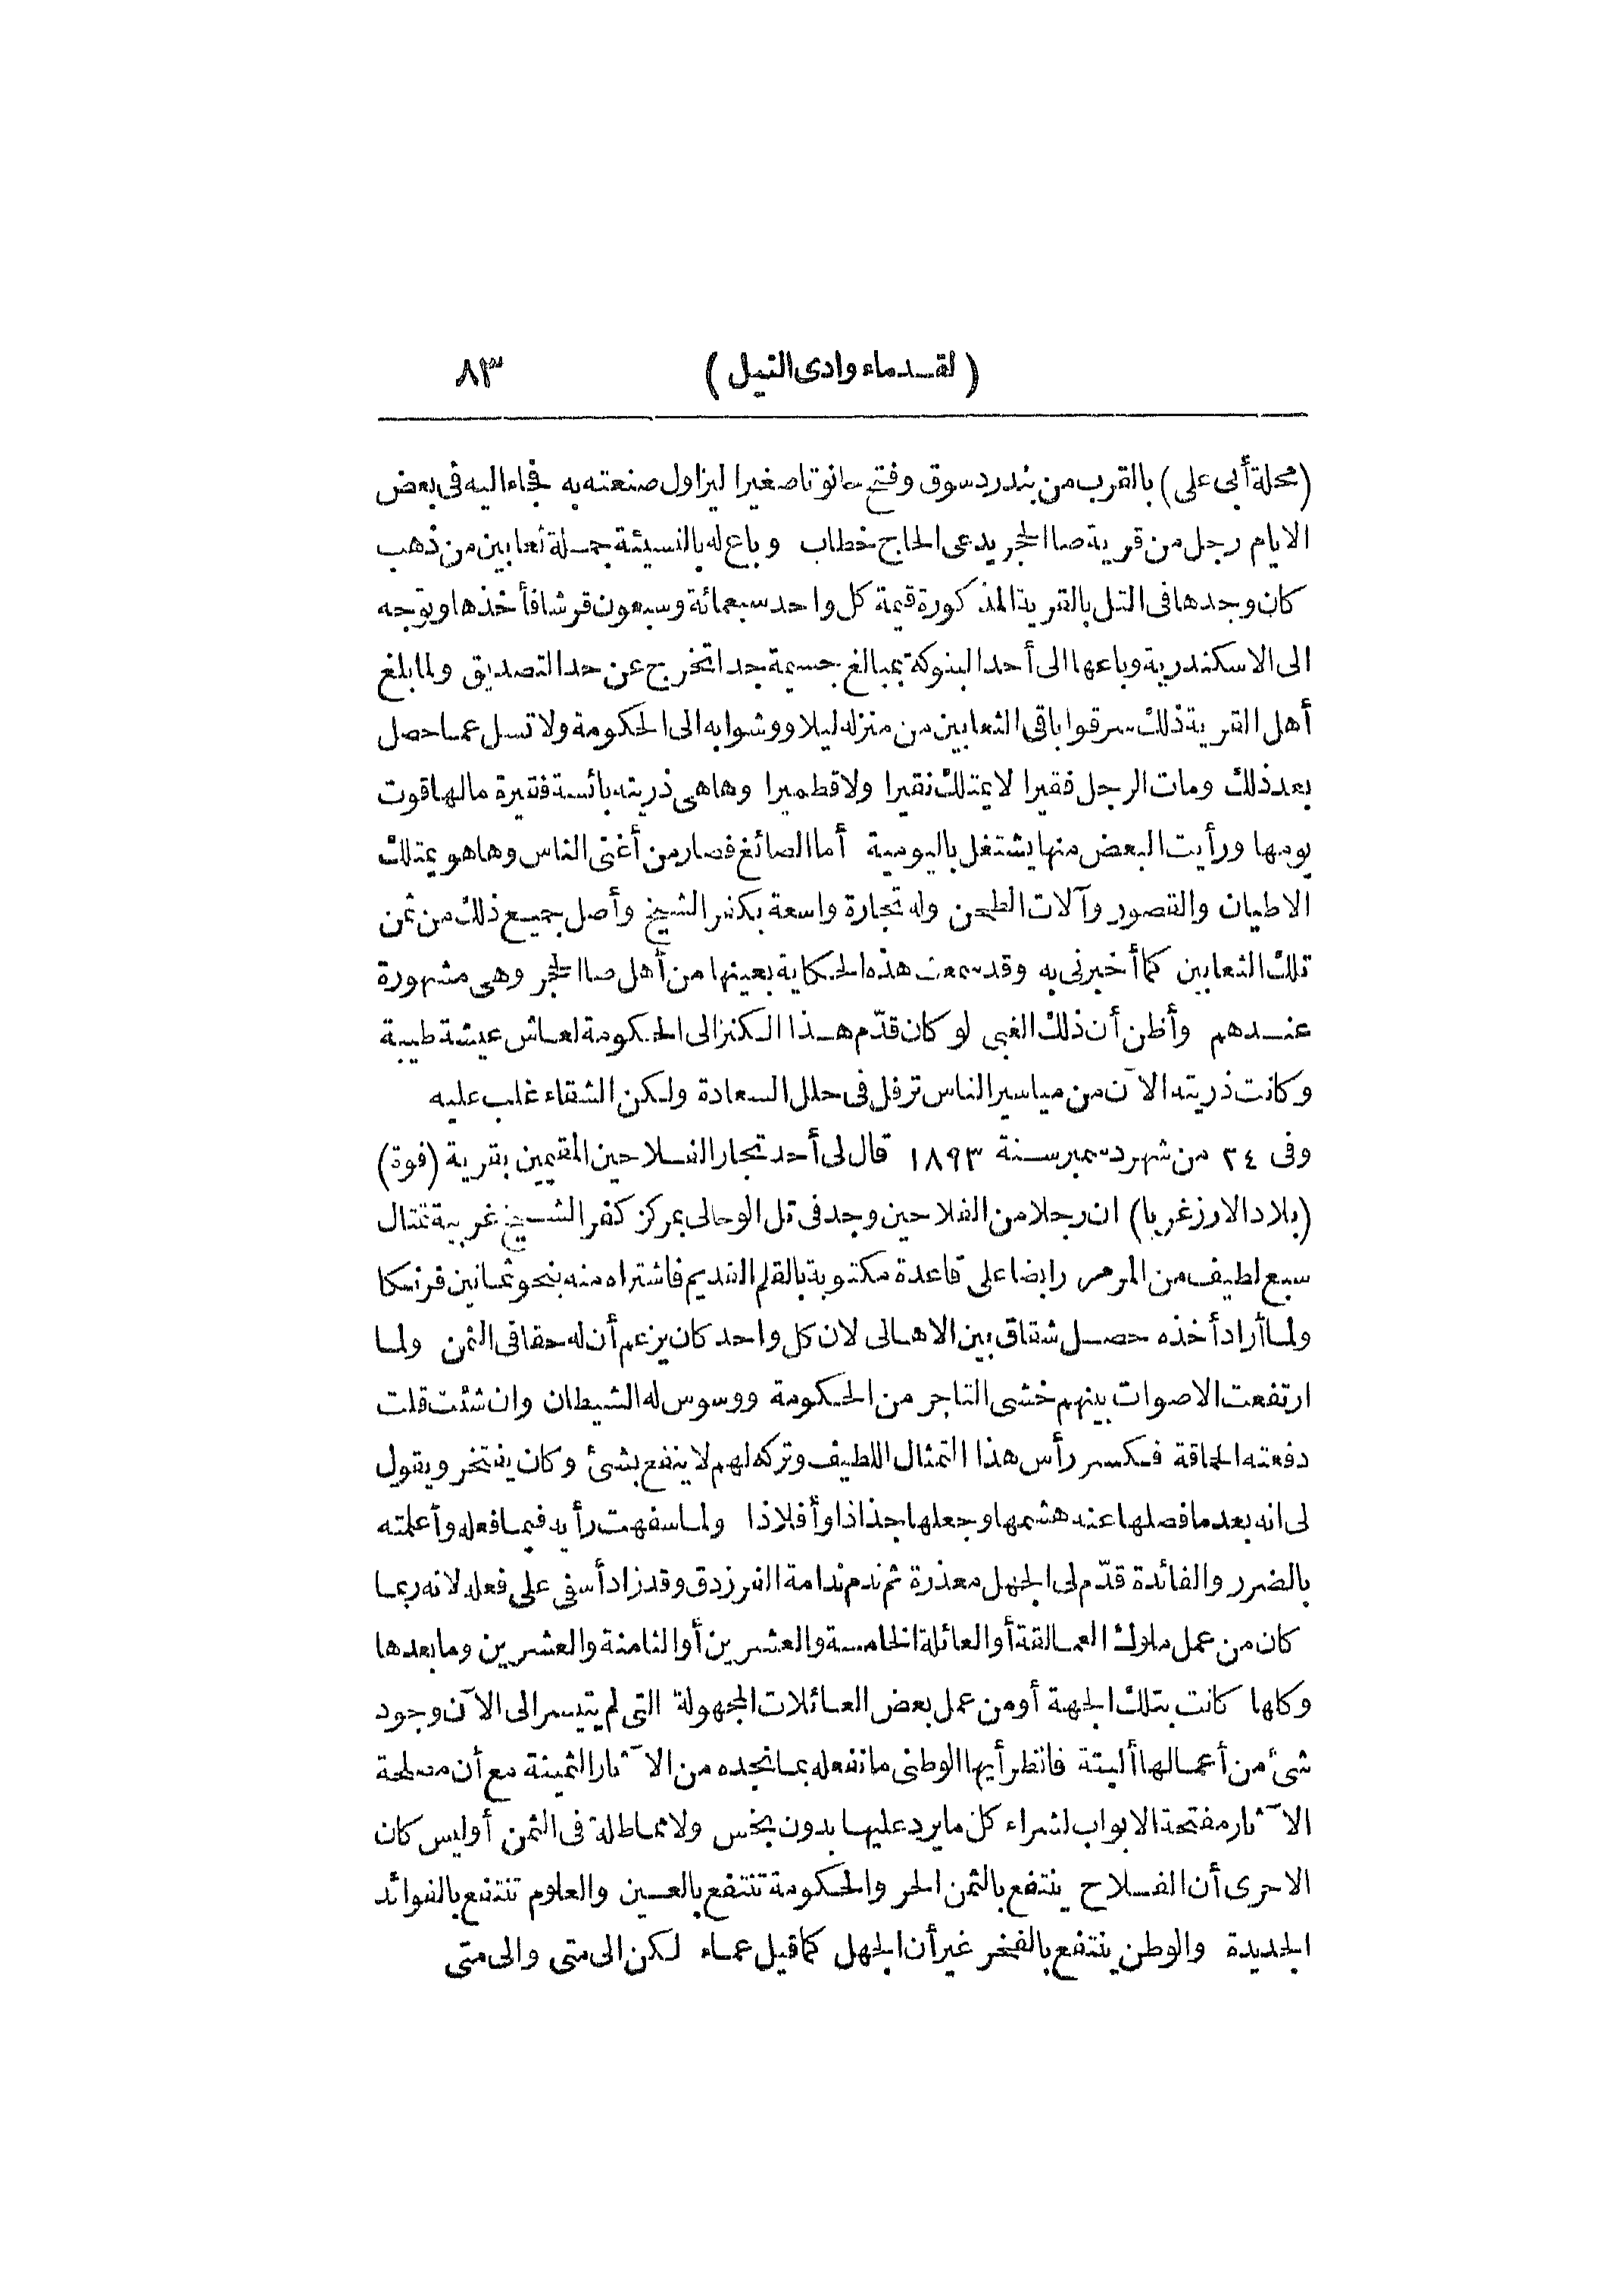 (لقدماء وادى النيل) ٨٣
(محلة أبى على) بالقرب من بندر دسوق وفتح حانوتا صغيرا ليزاول صنعته به فجاء اليه فى بعض
الايام رجل من قرية صا الحجر يدعى الحاج خطاب وباع له بالنسيئة جملة ثعابين من ذهب
كان وجدها فى التل بالقرية المذكورة قيمة كل واحد سبعمائة وسبعون قرشا فأخذها وتوجه
الى الاسكندرية وباعها الى أحد البنوكة بمبالغ جسيمة جدا تخرج عن حد التصديق ولما بلغ
أهل القرية ذلك سرقوا باقى الثعابين من منزله ليلا ووشوا به الى الحكومة ولا تسل عما حصل
بعد ذلك ومات الرجل فقيرا لا يمتلك نقيرا ولا قطميرا وها هى ذريته بائسة فقيرة ما لها قوت
يومها ورأيت البعض منها يشتغل باليومية أما الصائغ فصار من أغنى الناس وها هو يمتلك
الاطيان والقصور وآلات الطحن وله تجارة واسعة بكفر الشيخ وأصل جميع ذلك من ثمن
تلك الثعابين كما أخبرنى به وقد سمعت هذه الحكاية بعينها من أهل صا الحجر وهى مشهورة
عندهم وأظن أن ذلك الغبى لو كان قدّم هذا الكنز الى الحكومة لعاش عيشة طيبة
وكانت ذريته الآن من مياسير الناس ترفل فى حلل السعادة ولكن الشقاء غلب عليه
وفى ٢٤ من شهر دسمبر سنة ١٨٩٣ قال لى أحد تجار الفلاحين المقيمين بقرية (فوة)
(بلاد الارز غربا) ان رجلا من الفلاحين وجد فى تل الوحالى بمركز كفر الشيخ غربية تمثال
سبع لطيف من المرمر رابضا على قاعدة مكتوبة بالقلم القديم فاشتراه منه بنحو ثمانين فرنكا
ولما أراد أخذه حصل شقاق بين الاهالى لان كل واحد كان يزعم أن له حقا فى الثمن ولما
ارتفعت الاصوات بينهم خشى التاجر من الحكومة ووسوس له الشيطان وان شئت قلت
دفعته الحماقة فكسر رأس هذا التمثال اللطيف وتركه لهم لا ينفع بشئ وكان يفتخر ويقول
لى انه بعد ما فصلها عنه هشمها وجعلها جذاذا وأفلاذا ولما سفهت رأيه فيما فعله وأعلمته
بالضرر والفائدة قدّم لى الجهل معذرة ثم ندم ندامة الفرزدق وقد زاد أسفى على فعله لانه ربما
كان من عمل ملوك العمالقة أو العائلة الخامسة والعشرين أو الثامنة والعشرين وما بعدها
وكلها كانت بتلك الجهة أو من عمل بعض العائلات المجهولة التى لم يتيسر الى الآن وجود
شئ من أعمالها ألبتة فانظر أيها الوطنى ما تفعله بما نجده من الآثار الثمينة مع أن مصلحة
الآثار مفتحة الابواب لشراء كل ما يرد عليها بدون بخس ولا مماطلة فى الثمن أوليس كان
الاحرى أن الفلاح ينتفع بالثمن الحر والحكومة تنتفع بالعين والعلوم تنتفع بالفوائد
الجديدة والوطن ينتفع بالفخر غير أن الجهل كما قيل عماء لكن الى متى والى متى